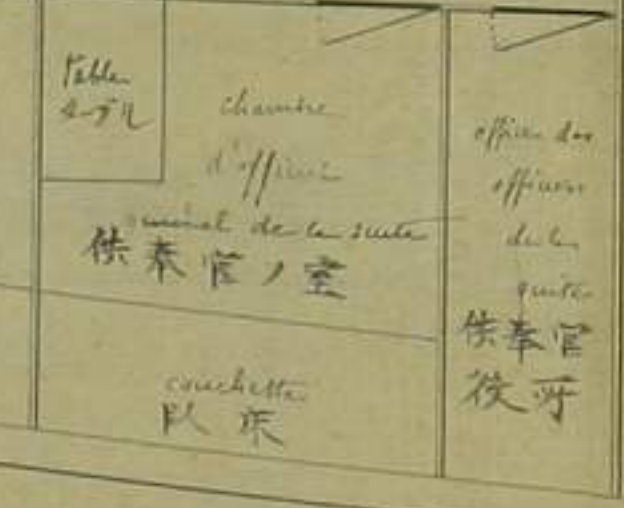 Table
テーブル
chambre
d'officier
général de la suite
供奉官ノ室
couchette
臥床
office des
officiers
de la
suite
供奉官
役所